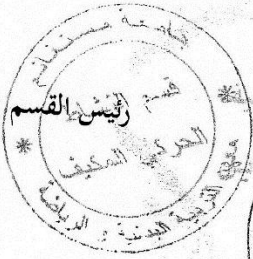 جامعة مستغانم
قسم النشاط
رئيس القسم
الحركي المكيف
معهد التربية البدنية و الرياضية